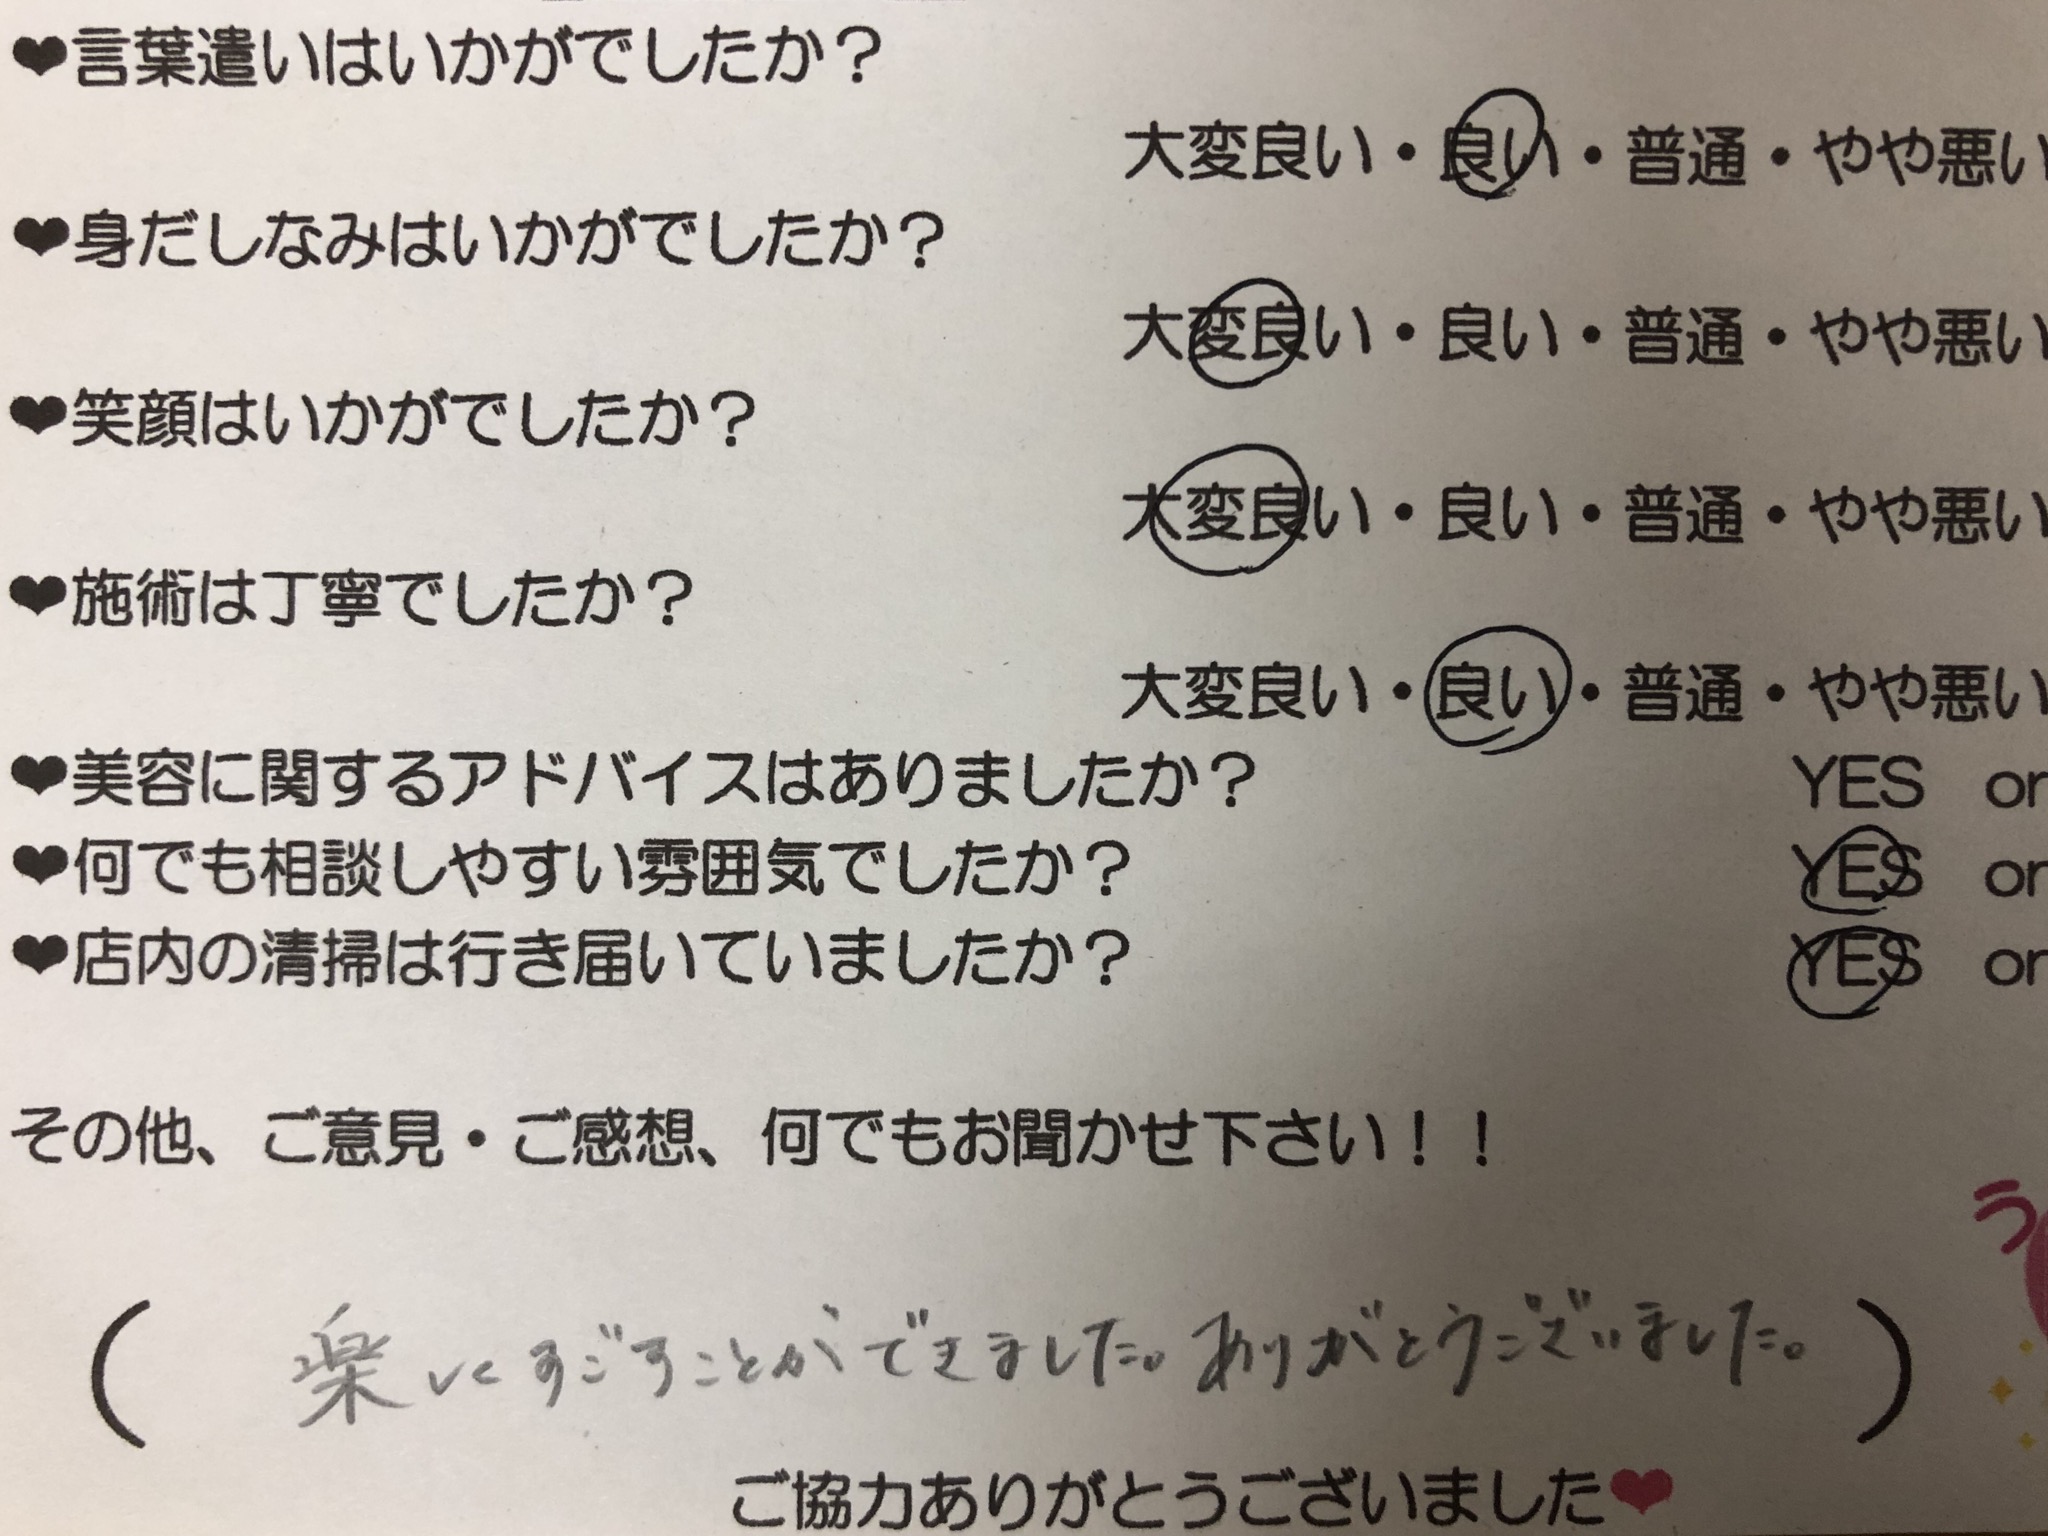 ❤言葉遣いはいかがでしたか？
大変良い・良い・普通・やや悪い
❤身だしなみはいかがでしたか？
大変良い・良い・普通・やや悪い
❤笑顔はいかがでしたか？
大変良い・良い・普通・やや悪い
❤施術は丁寧でしたか？
大変良い・良い・普通・やや悪い
❤美容に関するアドバイスはありましたか？ YES or
❤何でも相談しやすい雰囲気でしたか？ YES or
❤店内の清掃は行き届いていましたか？ YES or
その他、ご意見・ご感想、何でもお聞かせ下さい！！
う
（ 楽しくすごすことができました。ありがとうございました。 ）
ご協力ありがとうございました❤